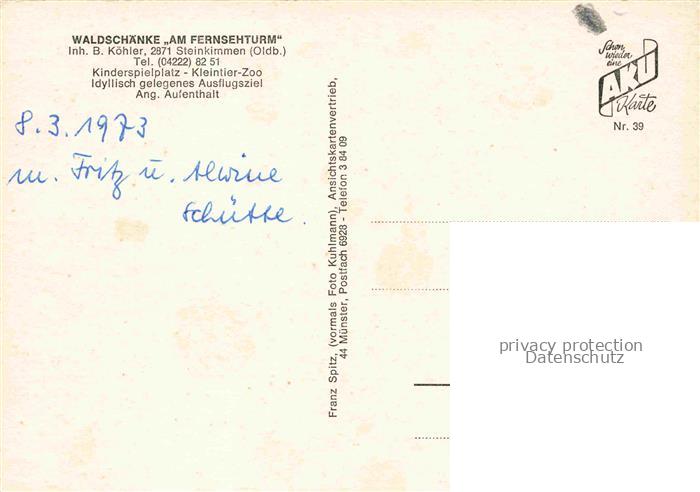 WALDSCHÄNKE „AM FERNSEHTURM“
Inh. B. Köhler, 2871 Steinkimmen (Oldb.)
Tel. (04222) 82 51
Kinderspielplatz - Kleintier-Zoo
Idyllisch gelegenes Ausflugsziel
Ang. Aufenthalt
8.3.1973
m. Fritz u. Alwine
Schütte.
Franz Spitz, (vormals Foto Kuhlmann), Ansichtskartenvertrieb,
44 Münster, Postfach 6923 - Telefon 3 84 09
Schon
wieder
eine
AKU
Karte
Nr. 39
privacy protection
Datenschutz